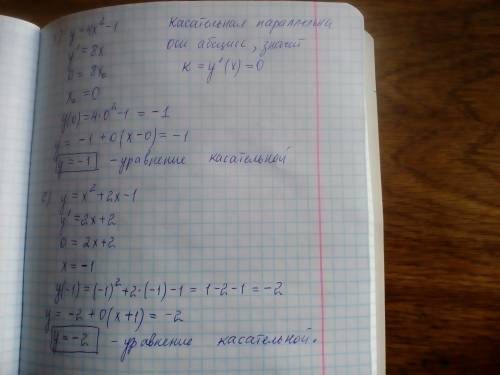 y=4x²-1
Касательная параллельна
оси абсцисс, значит
k=y'(x)=0
y'=8x
0=8x₀
x₀=0
y(0)=4·0²-1=-1
y=-1+0(x-0)=-1
y=-1 -уравнение касательной
y=x²+2x-1
y'=2x+2
0=2x+2
x=-1
y(-1)=(-1)²+2·(-1)-1=1-2-1=-2
y=-2+0(x+1)=-2
y=-2 -уравнение касательной.